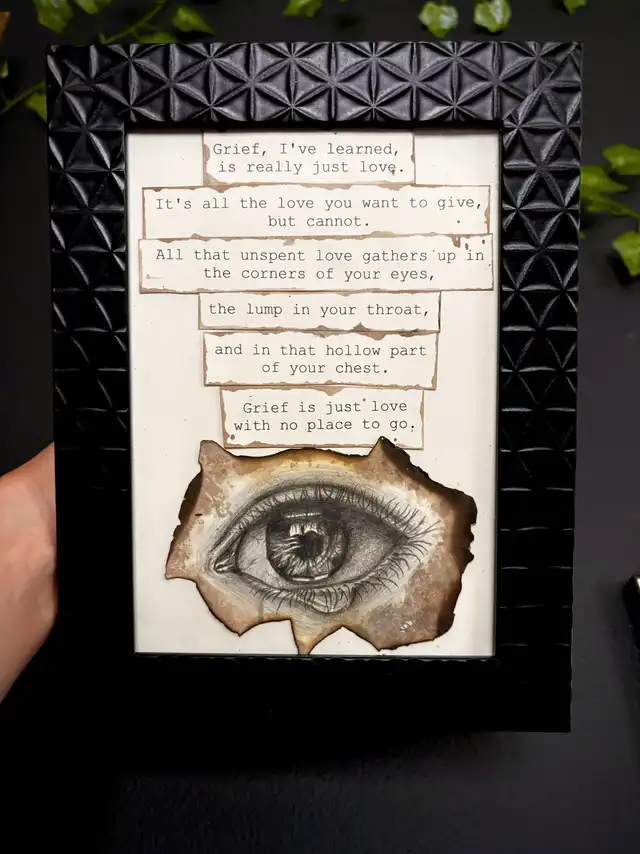 Grief, I've learned,
is really just love.
It's all the love you want to give,
but cannot.
All that unspent love gathers up in
the corners of your eyes,
the lump in your throat,
and in that hollow part
of your chest.
Grief is just love
with no place to go.